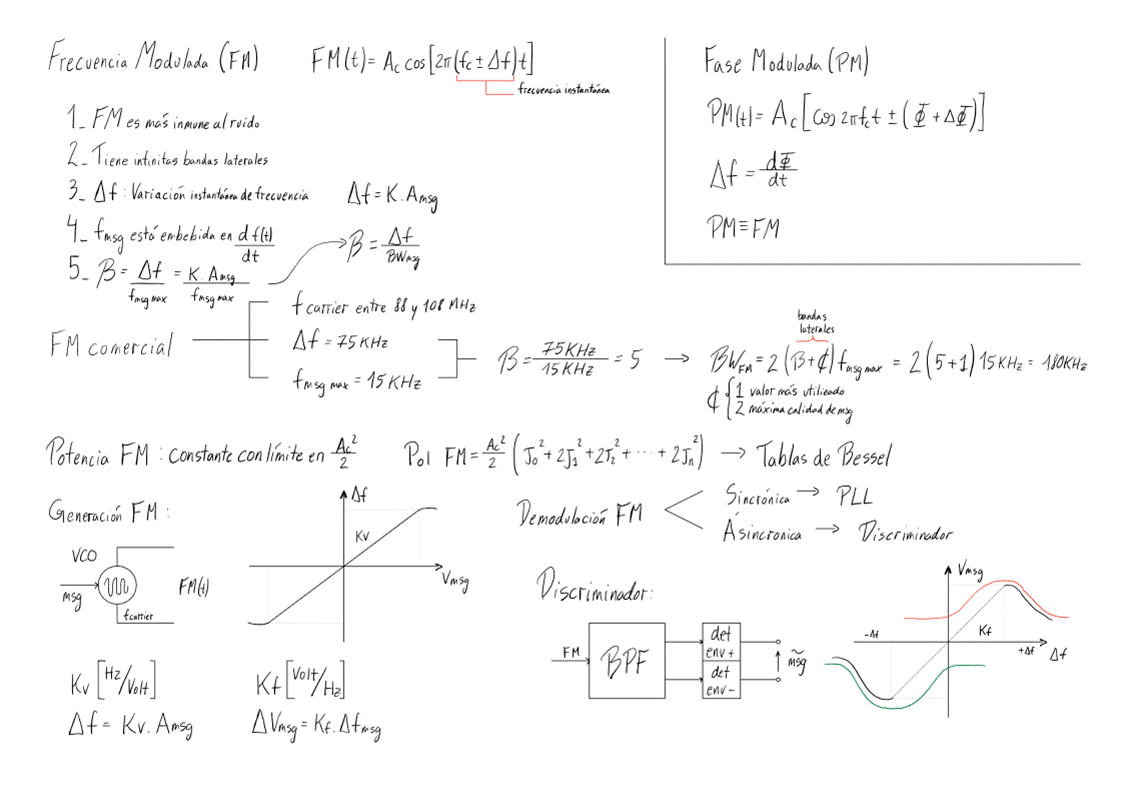 Frecuencia Modulada (FM)
FM(t) = Ac cos[2π(fc ± Δf)t]
frecuencia instantánea
1_ FM es más inmune al ruido
2_ Tiene infinitas bandas laterales
3_ Δf : Variación instantánea de frecuencia
Δf = K.Amsg
4_ fmsg está embebida en d f(t)/dt
5_ β = Δf/fmsg max = K.Amsg/fmsg max
β = Δf/BWmsg
Fase Modulada (PM)
PM(t) = Ac[cos 2πfct ± (Φ + ΔΦ)]
Δf = dΦ/dt
PM ≡ FM
FM comercial
f carrier entre 88 y 108 MHz
Δf = 75 KHz
fmsg max = 15 KHz
β = 75KHz/15KHz = 5 →
bandas
laterales
BWFM = 2(β+₵)fmsg max = 2(5+1)15KHz = 180KHz
₵ { 1 valor más utilizado
2 máxima calidad de msg
Potencia FM : constante con límite en Ac²/2
Pol FM = Ac²/2 (J₀² + 2J₁² + 2J₂² + ··· + 2Jn²) → Tablas de Bessel
Generación FM :
VCO
msg
fcarrier
FM(t)
Δf
Kv
Vmsg
Kv [Hz/Volt]
Δf = Kv.Amsg
Kf [Volt/Hz]
ΔVmsg = Kf.Δfmsg
Demodulación FM
Sincrónica → PLL
Ásincronica → Discriminador
Discriminador:
FM
BPF
det
env +
det
env -
m̃sg
Vmsg
-Δf
Kf
+Δf
Δf